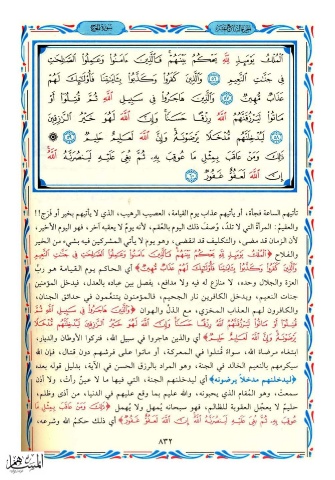 سورة الحج
الْمُلْكُ يَوْمَئِذٍ لِلَّهِ يَحْكُمُ بَيْنَهُمْ فَالَّذِينَ ءَامَنُوا وَعَمِلُوا الصَّالِحَاتِ
فِي جَنَّاتِ النَّعِيمِ ٥٦ وَالَّذِينَ كَفَرُوا وَكَذَّبُوا بِآيَاتِنَا فَأُولَئِكَ لَهُمْ
عَذَابٌ مُهِينٌ ٥٧ وَالَّذِينَ هَاجَرُوا فِي سَبِيلِ اللَّهِ ثُمَّ قُتِلُوا أَوْ
مَاتُوا لَيَرْزُقَنَّهُمُ اللَّهُ رِزْقًا حَسَنًا وَإِنَّ اللَّهَ لَهُوَ خَيْرُ الرَّازِقِينَ
٥٨ لَيُدْخِلَنَّهُمْ مُدْخَلًا يَرْضَوْنَهُ وَإِنَّ اللَّهَ لَعَلِيمٌ حَلِيمٌ ٥٩
ذَلِكَ وَمَنْ عَاقَبَ بِمِثْلِ مَا عُوقِبَ بِهِ ثُمَّ بُغِيَ عَلَيْهِ لَيَنْصُرَنَّهُ اللَّهُ
إِنَّ اللَّهَ لَعَفُوٌّ غَفُورٌ
تأتيهم الساعة فجأة، أو يأتيهم عذاب يوم القيامة، العصيب الرهيب، الذي لا يأتيهم بخير أو فَرَج!!
والعقيمُ: المرأةُ التي لا تلدُ، وُصفَ ذلك اليوم بالعُقم، لأنه يومٌ لا يعقبه آخر، فهو اليوم الأخير،
لأن الزمان قد مضى، والتكليف قد انقضى، وهو يوم لا يأتي المشركين فيه بشيء من الخير
والفلاح ﴿الْمُلْكُ يَوْمَئِذٍ لِلَّهِ يَحْكُمُ بَيْنَهُمْ فَالَّذِينَ ءَامَنُوا وَعَمِلُوا الصَّالِحَاتِ فِي جَنَّاتِ النَّعِيمِ
وَالَّذِينَ كَفَرُوا وَكَذَّبُوا بِآيَاتِنَا فَأُولَئِكَ لَهُمْ عَذَابٌ مُهِينٌ﴾ أي الحاكم يوم القيامة هو ربُّ
العزة والجلال وحده، لا منازع له فيه ولا مدافع، يفصل بين عباده بالعدل، فيدخل المؤمنين
جنات النعيم، ويدخل الكافرين نار الجحيم، فالمؤمنون يتنعَّمون في حدائق الجنان،
والكافرون لهم العذاب المخزي، مع الذلّ والهوان ﴿وَالَّذِينَ هَاجَرُوا فِي سَبِيلِ اللَّهِ ثُمَّ
قُتِلُوا أَوْ مَاتُوا لَيَرْزُقَنَّهُمُ اللَّهُ رِزْقًا حَسَنًا وَإِنَّ اللَّهَ لَهُوَ خَيْرُ الرَّازِقِينَ لَيُدْخِلَنَّهُمْ مُدْخَلًا
يَرْضَوْنَهُ وَإِنَّ اللَّهَ لَعَلِيمٌ حَلِيمٌ﴾ أي والذين هاجروا في سبيل الله، فتركوا الأوطان والديار،
ابتغاء مرضاة الله، سواءٌ قُتلوا في المعركة، أو ماتوا على فرشهم دون قتال، فإن الله
سيكرمهم بالنعيم الخالد في الجنة، وهو المراد بالرزق الحسن في الآية، بدليل قوله بعده
﴿ليدخلنهم مدخلاً يرضونه﴾ أي ليدخلنهم الجنة، التي فيها ما لا عينٌ رأت، ولا أذن
سمعتْ، وهو المُقام الذي يحبونه، والله عليم بما وقع عليهم في الدنيا، من أذى وظلم،
حليمٌ لا يعجّل العقوبة للظالم، فهو سبحانه يُمهل ولا يُهمل ﴿ذَلِكَ وَمَنْ عَاقَبَ بِمِثْلِ مَا
عُوقِبَ بِهِ ثُمَّ بُغِيَ عَلَيْهِ لَيَنْصُرَنَّهُ اللَّهُ إِنَّ اللَّهَ لَعَفُوٌّ غَفُورٌ﴾ أي ذلك حكمُ الله وشرعه،
٨٣٢